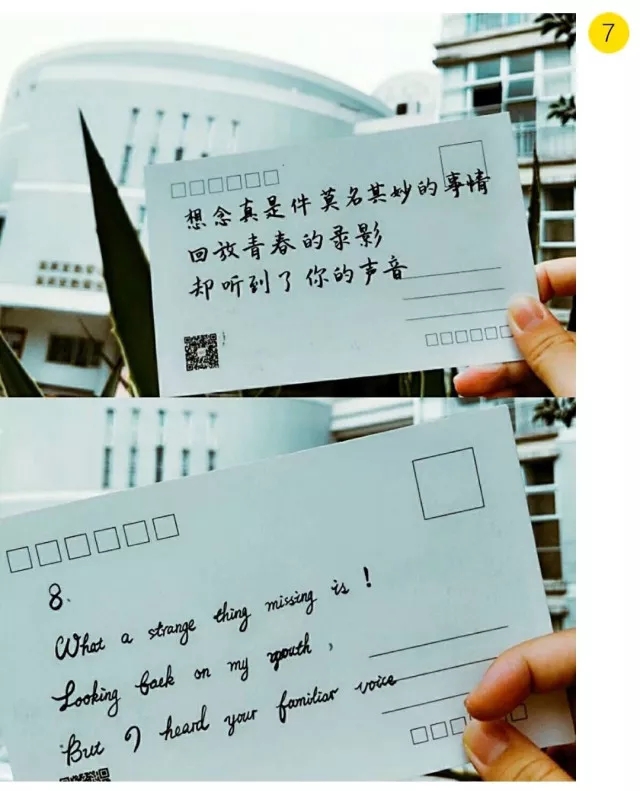 7
想念真是件莫名其妙的事情
回放青春的录影
却听到了你的声音
8.
What a strange thing missing is!
Looking back on my youth,
But I heard your familiar voice